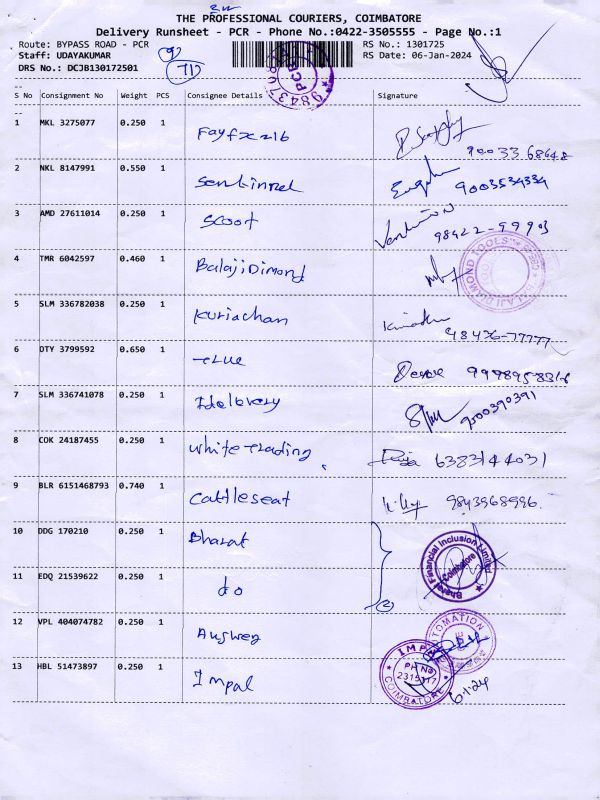 THE PROFESSIONAL COURIERS, COIMBATORE
Delivery Runsheet - PCR - Phone No.:0422-3505555 - Page No.:1
Route: BYPASS ROAD - PCR
RS No.: 1301725
Staff: UDAYAKUMAR
RS Date: 06-Jan-2024
DRS No.: DCJB130172501
S No Consignment No Weight PCS Consignee Details Signature
1 MKL 3275077 0.250 1
90033 68648
2 NKL 8147991 0.550 1 Sentinnel
9003534334
3 AMD 27611014 0.250 1 Scoot
98422-99903
4 TMR 6042597 0.460 1 Balaji Dimond
BALAJI DIAMOND TOOLS
5 SLM 336782038 0.250 1 Kuriachan
48436-77777
6 OTY 3799592 0.650 1 True
7 SLM 336741078 0.250 1 Idelevery
9500390391
8 COK 24187455 0.250 1 White trading
6383144031
9 BLR 6151468793 0.740 1 Cattleseat
9843968996
10 DDG 170210 0.250 1 Bharat
Bharat Financial Inclusion Limited
Coimbatore
11 EDQ 21539622 0.250 1 do
2
12 VPL 404074782 0.250 1
13 HBL 51473897 0.250 1 Impal
IMPAL
PH No
2315317
COIMBATORE
6-1-24